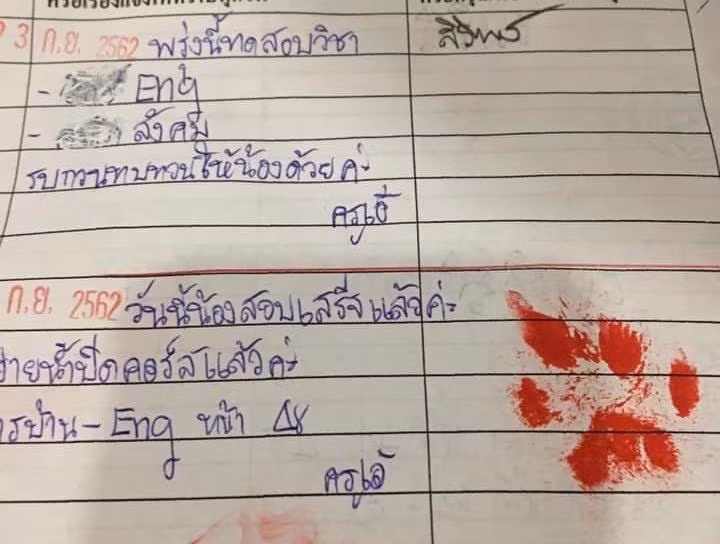 3 ก.ย. 2562 พรุ่งนี้ทดสอบวิชา
สิริพร
- Eng
- สังคม
รบกวนทบทวนให้น้องด้วยค่ะ
ครูเจี๊
ก.ย. 2562 วันนี้น้องสอบเสร็จแล้วค่ะ
ว่ายน้ำปิดคอร์สแล้วค่ะ
การบ้าน - Eng หน้า